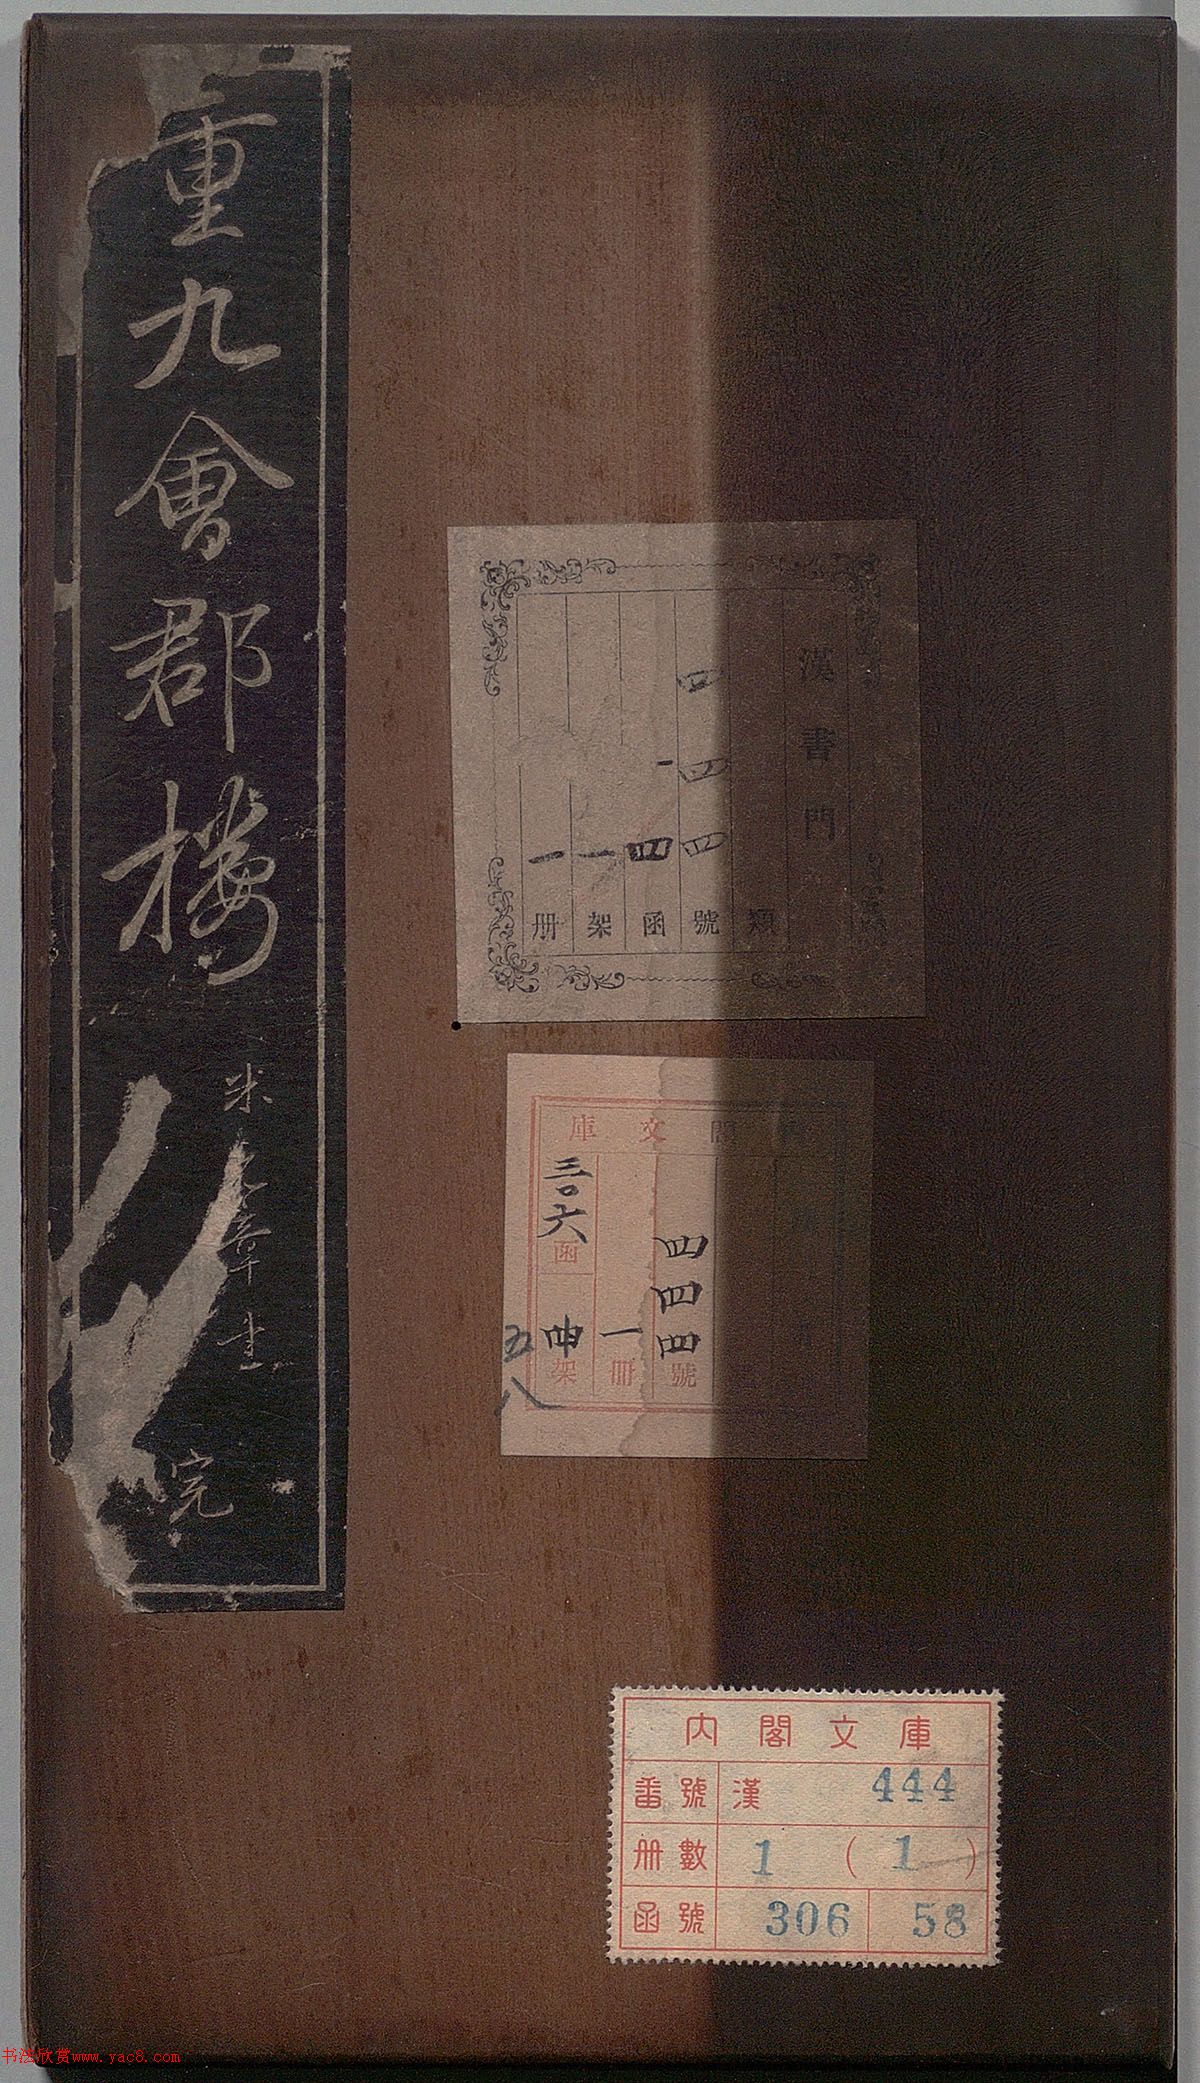 重九會郡樓
米
章
完
漢書門
類
四四四號
四函
一架
一册
文庫
四四四號
一冊
三〇六函
架
五八
内閣文庫
番號 漢 444
冊數 1 (1)
函號 306 58
书法欣赏www.yac8.com